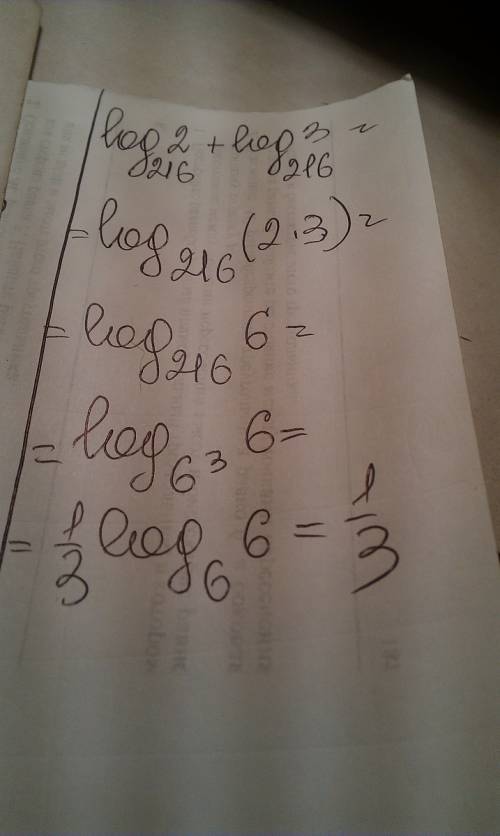 log₂₁₆2 + log₂₁₆3 =
= log₂₁₆(2·3) =
= log₂₁₆ 6 =
= log₆³ 6 =
= 1/3 log₆ 6 = 1/3